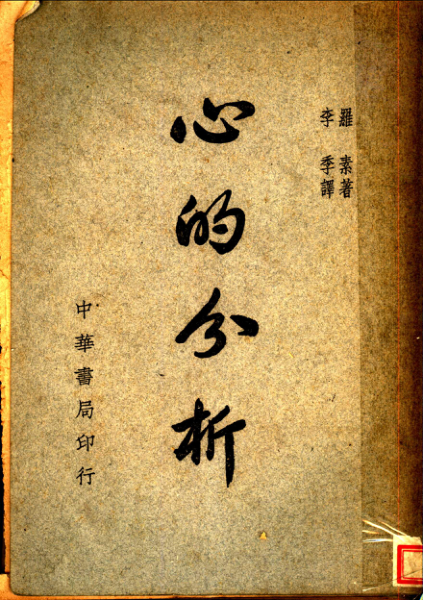 羅素著
李季譯
心的分析
中華書局印行